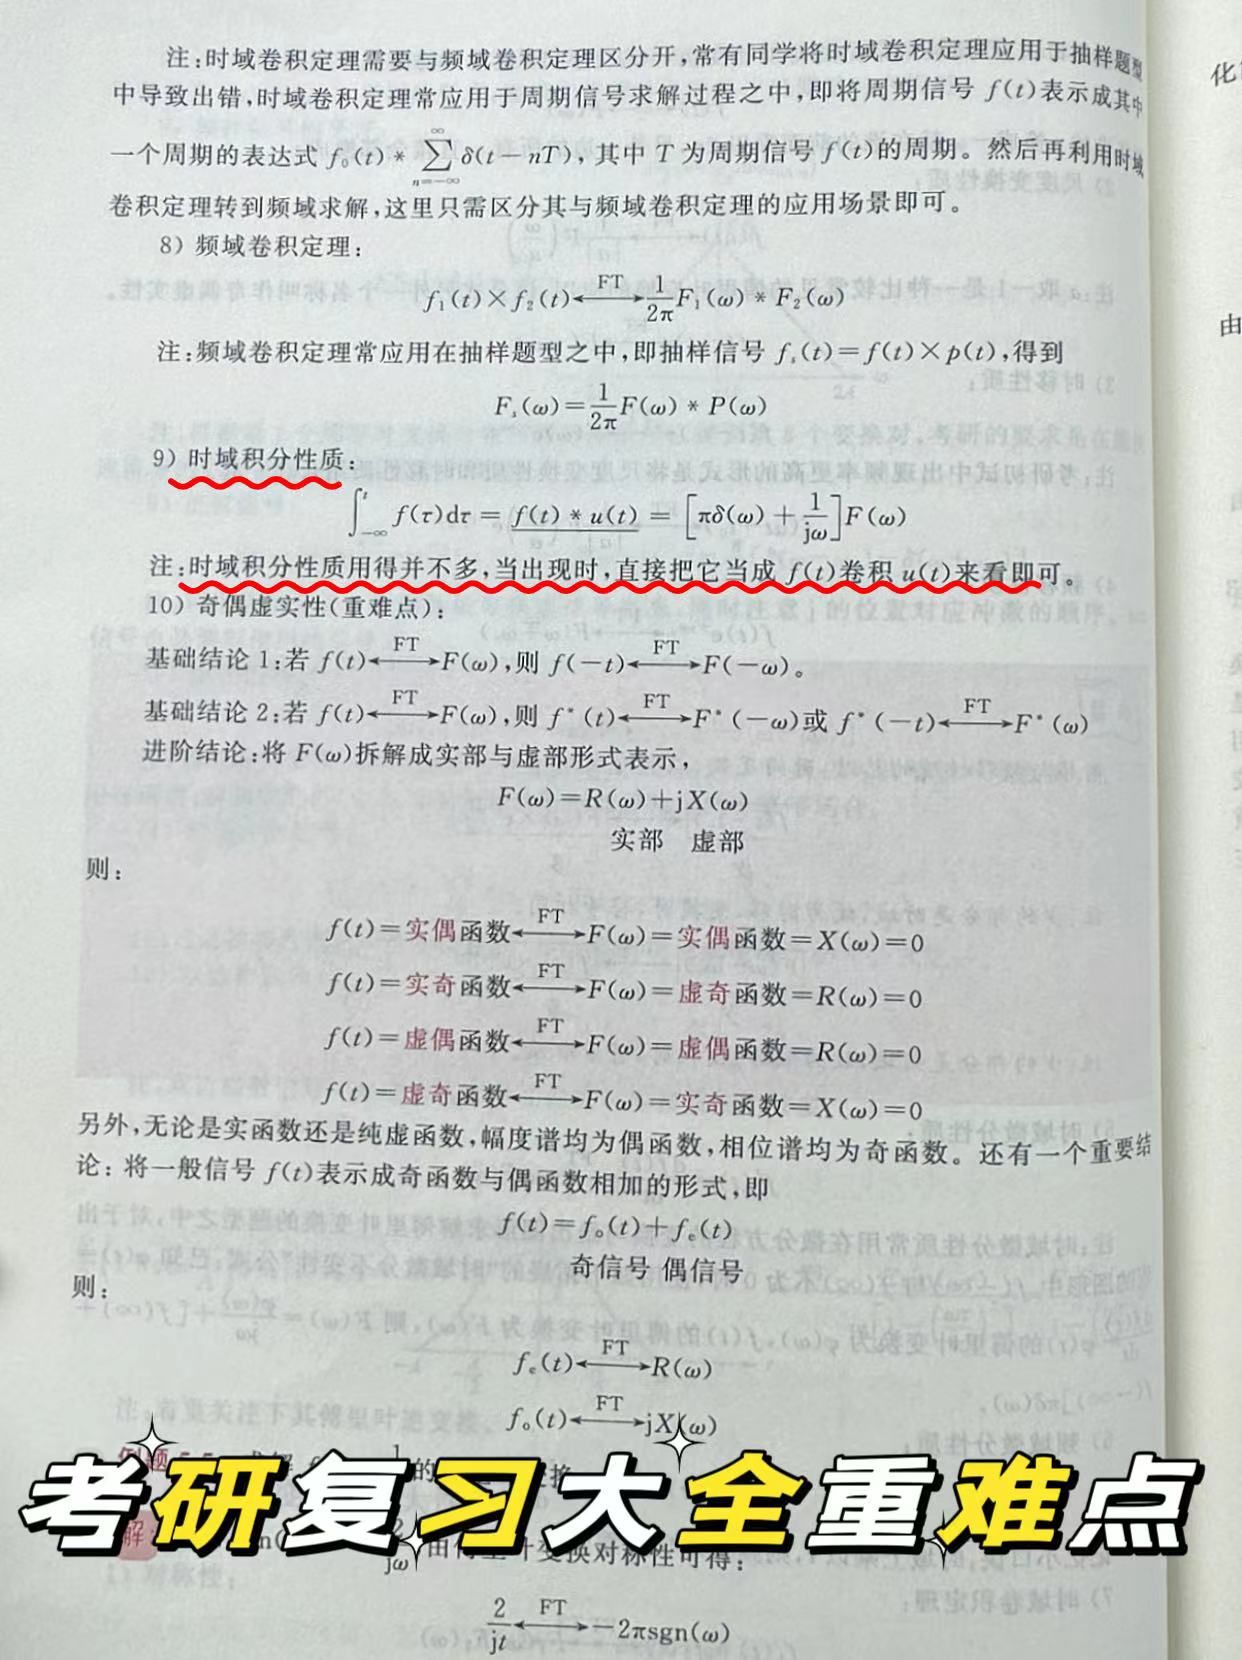 注:时域卷积定理需要与频域卷积定理区分开,常有同学将时域卷积定理应用于抽样题型
中导致出错,时域卷积定理常应用于周期信号求解过程之中,即将周期信号 f(t)表示成其中
一个周期的表达式 f₀(t) * ∑_{n=-∞}^{∞} δ(t-nT), 其中 T 为周期信号 f(t)的周期。然后再利用时域
卷积定理转到频域求解,这里只需区分其与频域卷积定理的应用场景即可。
8) 频域卷积定理:
f₁(t)×f₂(t) ←FT→ 1/2π F₁(ω) * F₂(ω)
注:频域卷积定理常应用在抽样题型之中,即抽样信号 fₛ(t)=f(t)×p(t),得到
Fₛ(ω)=1/2π F(ω) * P(ω)
9) 时域积分性质:
∫_{-∞}^{t} f(τ)dτ = f(t) * u(t) = [πδ(ω) + 1/jω]F(ω)
注:时域积分性质用得并不多,当出现时,直接把它当成 f(t)卷积 u(t)来看即可。
10) 奇偶虚实性(重难点):
基础结论 1:若 f(t) ←FT→ F(ω),则 f(-t) ←FT→ F(-ω)。
基础结论 2:若 f(t) ←FT→ F(ω),则 f*(t) ←FT→ F*(-ω)或 f*(-t) ←FT→ F*(ω)
进阶结论:将 F(ω)拆解成实部与虚部形式表示,
F(ω)=R(ω)+jX(ω)
实部 虚部
则:
f(t)=实偶函数 ←FT→ F(ω)=实偶函数=X(ω)=0
f(t)=实奇函数 ←FT→ F(ω)=虚奇函数=R(ω)=0
f(t)=虚偶函数 ←FT→ F(ω)=虚偶函数=R(ω)=0
f(t)=虚奇函数 ←FT→ F(ω)=实奇函数=X(ω)=0
另外,无论是实函数还是纯虚函数,幅度谱均为偶函数,相位谱均为奇函数。还有一个重要结
论: 将一般信号 f(t)表示成奇函数与偶函数相加的形式,即
f(t)=fₒ(t)+fₑ(t)
奇信号 偶信号
则:
fₑ(t) ←FT→ R(ω)
fₒ(t) ←FT→ jX(ω)
例题
考研复习大全重难点
解
变换对称性可得:
2/jt ←FT→ -2πsgn(ω)